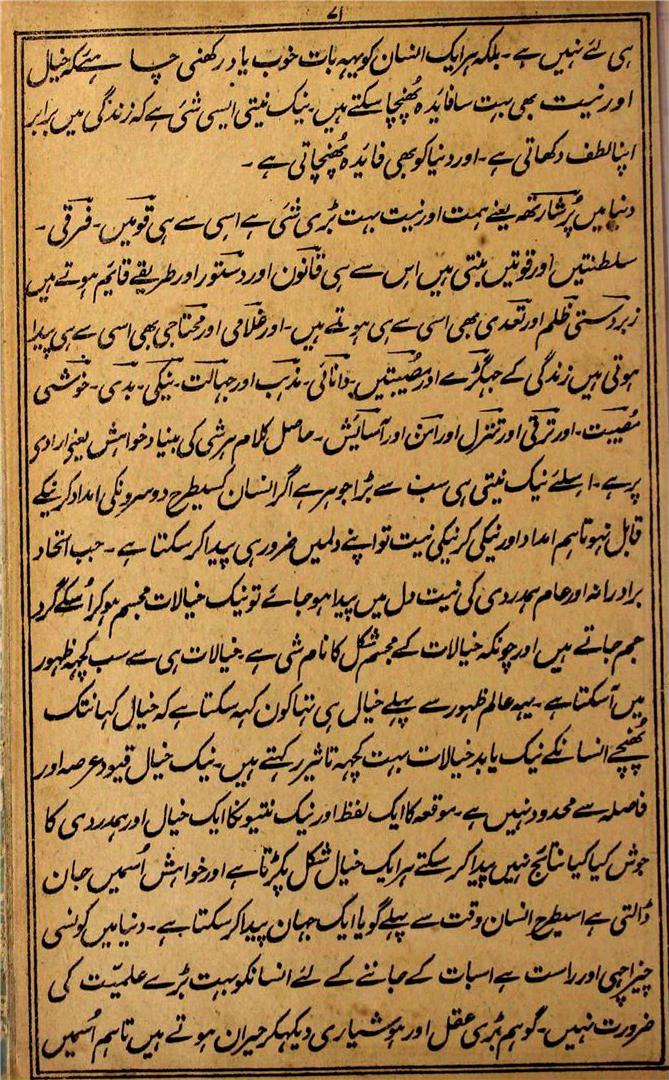 ۷۱
ہی لئے نہیں ہے۔ بلکہ ہر ایک انسان کو یہہ بات خوب یاد رکھنی چاہئے کہ خیال
اور نیت بھی بہت سا فایدہ پُھنچا سکتے ہیں۔ نیک نیتی ایسی شئی ہے کہ زندگی میں برابر
اپنا لطف دکھاتی ہے۔ اور دنیا کو بھی فایدہ پُھنچاتی ہے۔
دنیا میں پُرشارتھ یعنے ہمت اور نیت بہت بڑی شئی ہے اسی سے ہی قومیں۔ فرقی۔
سلطنتیں اور قوتیں بنتی ہیں اس سے ہی قانون اور دستور اور طریقے قایم ہوتے ہیں
زبردستی ظلم اور تعدی بھی اسی سے ہی ہوتے ہیں۔ اور غلامی اور محتاجی بھی اسی سے ہی پیدا
ہوتی ہیں زندگی کے جہگڑے اور مصیبتیں۔ دانائی۔ مذہب اور جہالت۔ نیکی۔ بدی۔ خوشی
مصیبت۔ اور ترقی اور تنزل اور امن اور آسائیش۔ حاصل کلام ہر شی کی بنیاد خواہش یعنی ارادی
پر ہے۔ اسلئے نیک نیتی ہی سب سے بڑا جوہر ہے اگر انسان کسیطرح دوسرونکی امداد کرنیکے
قابل نہو تاہم امداد اور نیکی کرنیکی نیت تو اپنے دلمیں ضرور ہی پیدا کر سکتا ہے۔ جب اتحاد
برادرانہ اور عام ہمدردی کی نیت دل میں پیدا ہو جائے تو نیک خیالات مجسم ہو کر اُسکے گرد
جم جاتے ہیں اور چونکہ خیالات کے مجسم شکل کا نام شی ہے۔ خیالات ہی سے سب کچہہ ظہور
میں آسکتا ہے۔ یہہ عالم ظہور سے پہلے خیال ہی تھا کون کہہ سکتا ہے کہ خیال کہانتک
پُھنچے انسانکے نیک یا بد خیالات بہت کچہہ تاثیر رکہتے ہیں۔ نیک خیال قیود عرصہ اور
فاصلہ سے محدود نہیں ہے۔ موقعہ کا ایک لفظ اور نیک نتیونکا ایک خیال اور ہمدردی کا
جوش کیا کیا نتائج نہیں پیدا کر سکتے ہر ایک خیال شکل پکڑتا ہے اور خواہش اُسمیں جان
ڈالتی ہے اسیطرح انسان وقت سے پہلے گویا ایک جہان پیدا کر سکتا ہے۔ دنیا میں کونسی
چیز اچہی اور راست ہے اسبات کے جاننے کے لئے انسانکو بہت بڑے علمیّت کی
ضرورت نہیں۔ گو ہم بڑی عقل اور ہوشیاری دیکہکر حیران ہوتے ہیں تاہم اُسمیں